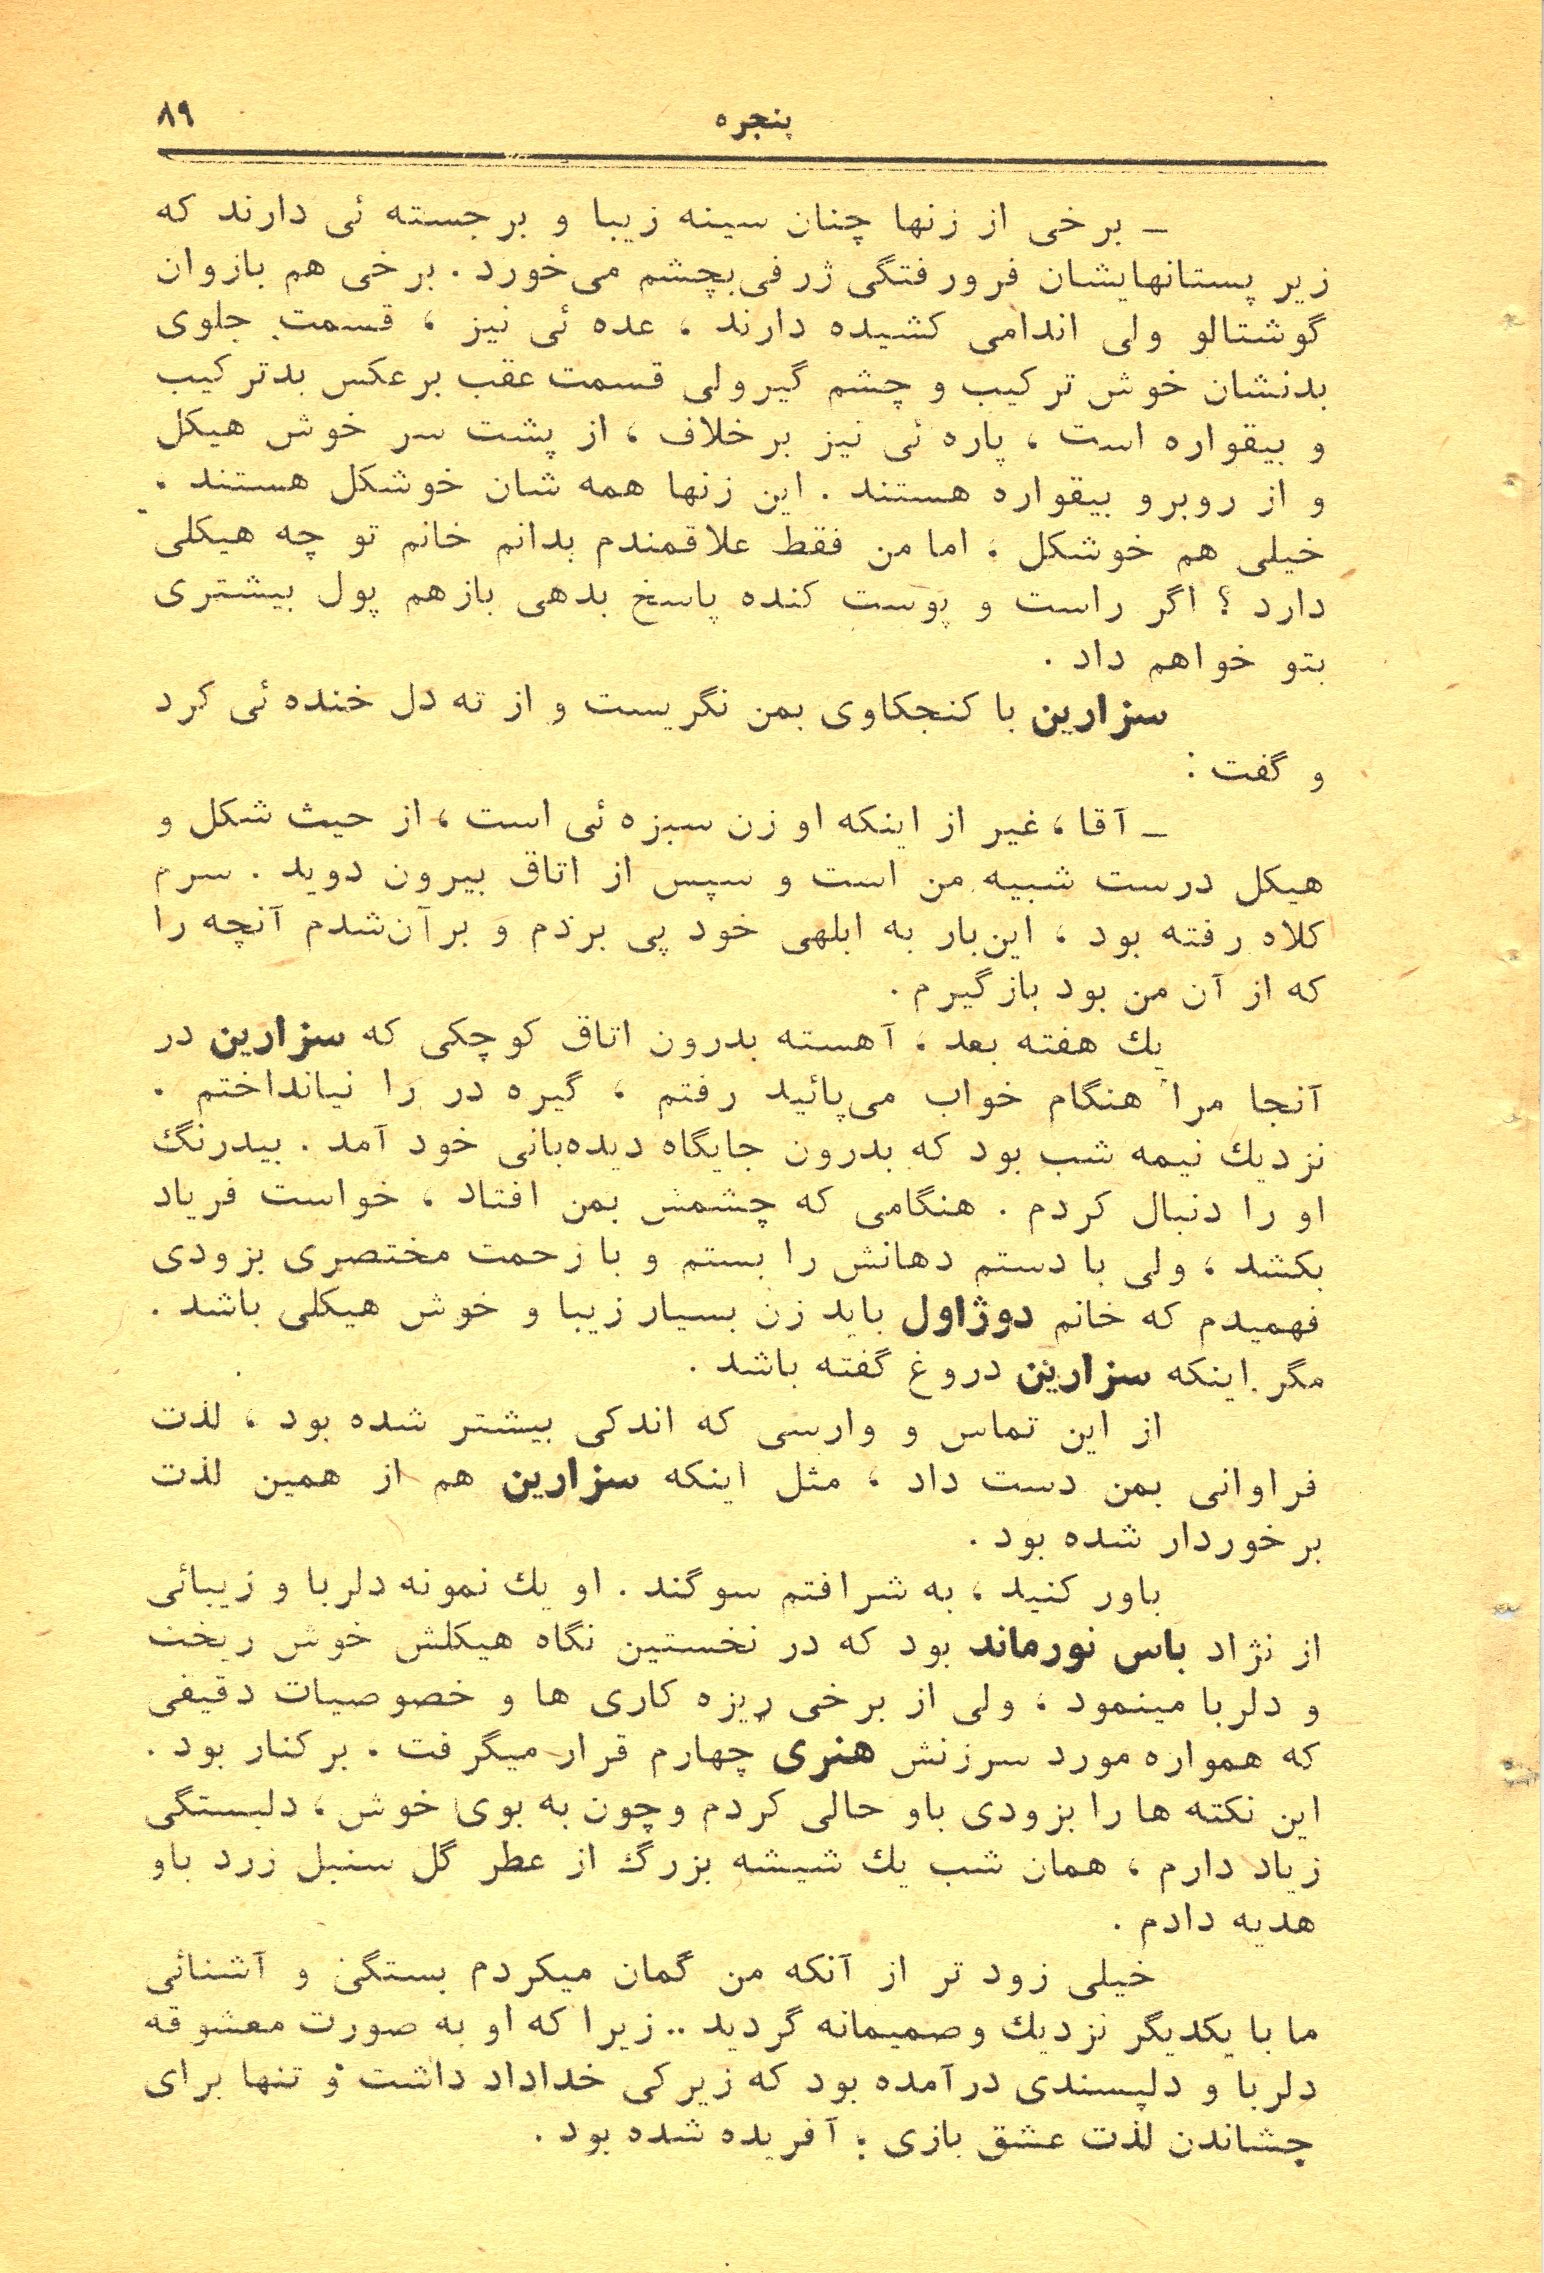 پنجره ۸۹
ـ برخی از زنها چنان سینه زیبا و برجسته ئی دارند که
زیر پستانهایشان فرورفتگی ژرفی بچشم می‌خورد . برخی هم بازوان
گوشتالو ولی اندامی کشیده دارند ، عده ئی نیز ، قسمت جلوی
بدنشان خوش ترکیب و چشم گیرولی قسمت عقب برعکس بدترکیب
و بیقواره است ، پاره ئی نیز برخلاف ، از پشت سر خوش هیکل
و از روبرو بیقواره هستند . این زنها همه شان خوشکل هستند .
خیلی هم خوشکل . اما من فقط علاقمندم بدانم خانم تو چه هیکلی
دارد ؟ اگر راست و پوست کنده پاسخ بدهی بازهم پول بیشتری
بتو خواهم داد .
سزارین با کنجکاوی بمن نگریست و از ته دل خنده ئی کرد
و گفت :
ـ آقا ، غیر از اینکه او زن سبزه ئی است ، از حیث شکل و
هیکل درست شبیه من است و سپس از اتاق بیرون دوید . سرم
کلاه رفته بود ، این‌بار به ابلهی خود پی بردم و برآن‌شدم آنچه را
که از آن من بود بازگیرم .
یك هفته بعد ، آهسته بدرون اتاق کوچکی که سزارین در
آنجا مرا هنگام خواب می‌پائید رفتم ، گیره در را نیانداختم .
نزدیك نیمه شب بود که بدرون جایگاه دیده‌بانی خود آمد . بیدرنگ
او را دنبال کردم . هنگامی که چشمش بمن افتاد ، خواست فریاد
بکشد ، ولی با دستم دهانش را بستم و با زحمت مختصری بزودی
فهمیدم که خانم دوژاول باید زن بسیار زیبا و خوش هیکلی باشد .
مگر اینکه سزارین دروغ گفته باشد .
از این تماس و وارسی که اندکی بیشتر شده بود ، لذت
فراوانی بمن دست داد ، مثل اینکه سزارین هم از همین لذت
برخوردار شده بود .
باور کنید ، به شرافتم سوگند . او یك نمونه دلربا و زیبائی
از نژاد باس نورماند بود که در نخستین نگاه هیکلش خوش ریخت
و دلربا مینمود ، ولی از برخی ریزه کاری ها و خصوصیات دقیقی
که همواره مورد سرزنش هنری چهارم قرار میگرفت . برکنار بود .
این نکته ها را بزودی باو حالی کردم وچون به بوی خوش ، دلبستگی
زیاد دارم ، همان شب یك شیشه بزرگ از عطر گل سنبل زرد باو
هدیه دادم .
خیلی زود تر از آنکه من گمان میکردم بستگی و آشنائی
ما با یکدیگر نزدیك وصمیمانه گردید .. زیرا که او به صورت معشوقه
دلربا و دلپسندی درآمده بود که زیرکی خداداد داشت و تنها برای
چشاندن لذت عشق بازی ، آفریده شده بود .